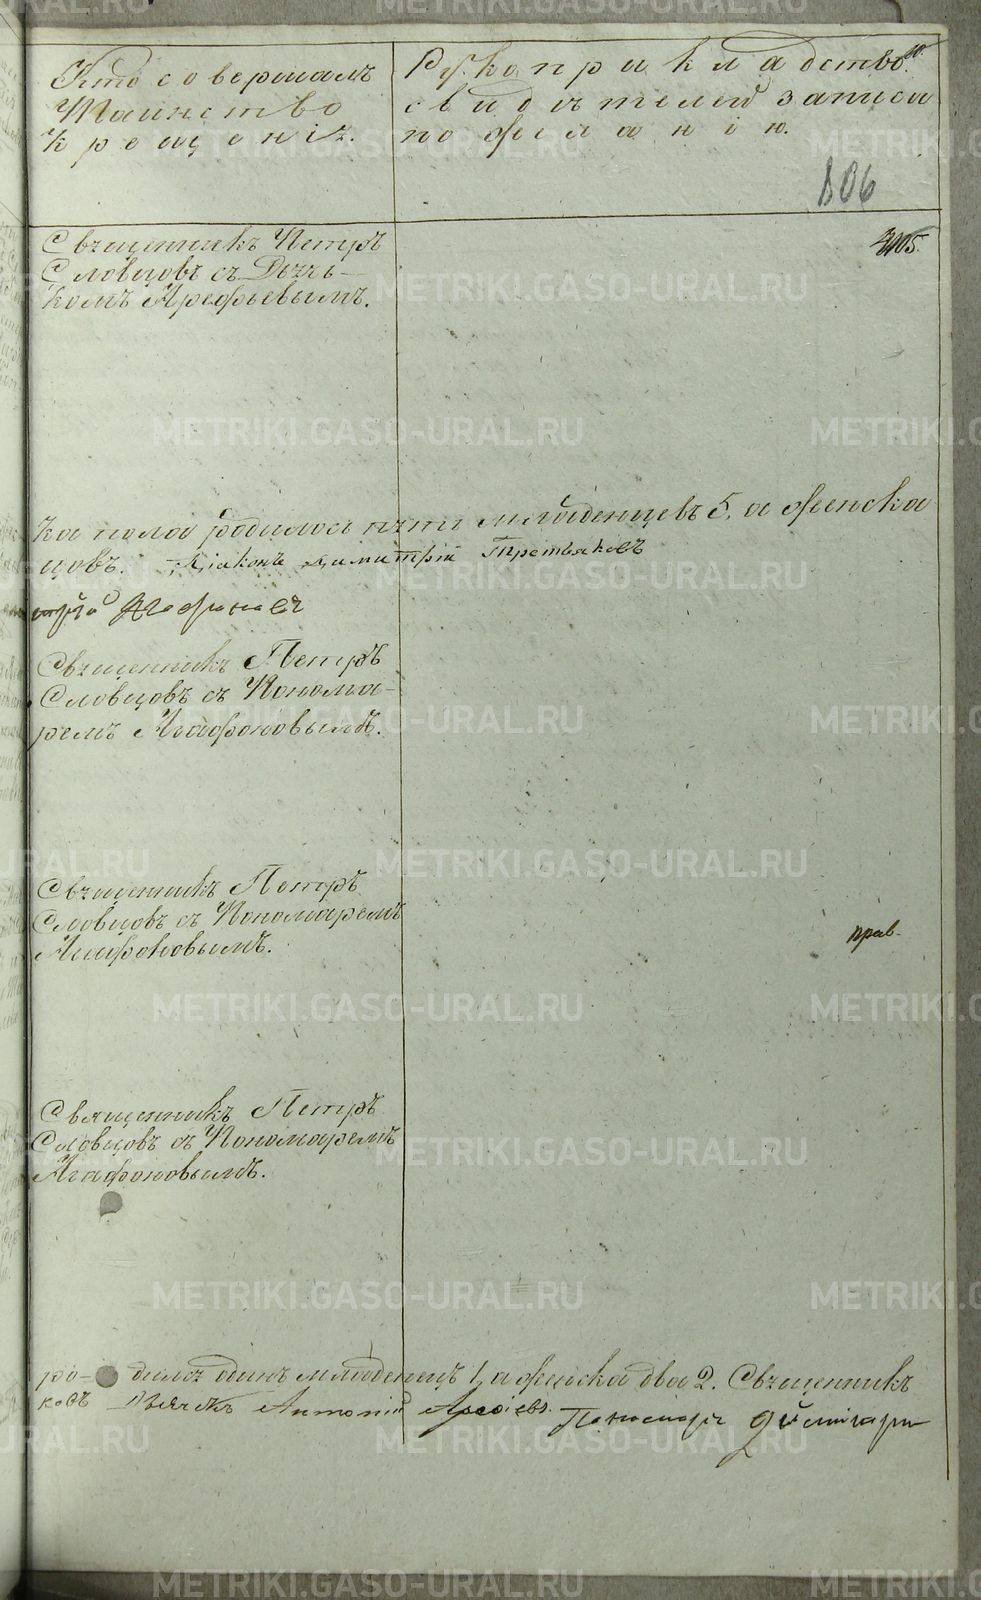 Кто совершалъ
Таинство
крещенія.
Рукоприкладство
свидѣтелей записи
по желанію.
806
105.
Священникъ Петръ
Словцовъ съ Дьячь-
комъ Арефьевымъ.
ка пола родилось пять младенцевъ 5, а женска
цовъ. Діаконъ Димитрій Третьяковъ
Агафоновъ
Священникъ Петръ
Словцовъ съ Понома-
ремъ Агафоновымъ.
Священникъ Петръ
Словцовъ съ Пономаремъ
Агафоновымъ.
прав.
Священникъ Петръ
Словцовъ съ Пономаремъ
Агафоновымъ.
ро- дилса одинъ младенецъ 1, а женска два 2. Священникъ
ковъ Дьячекъ Антоній Пономарь
METRIKI.GASO-URAL.RU